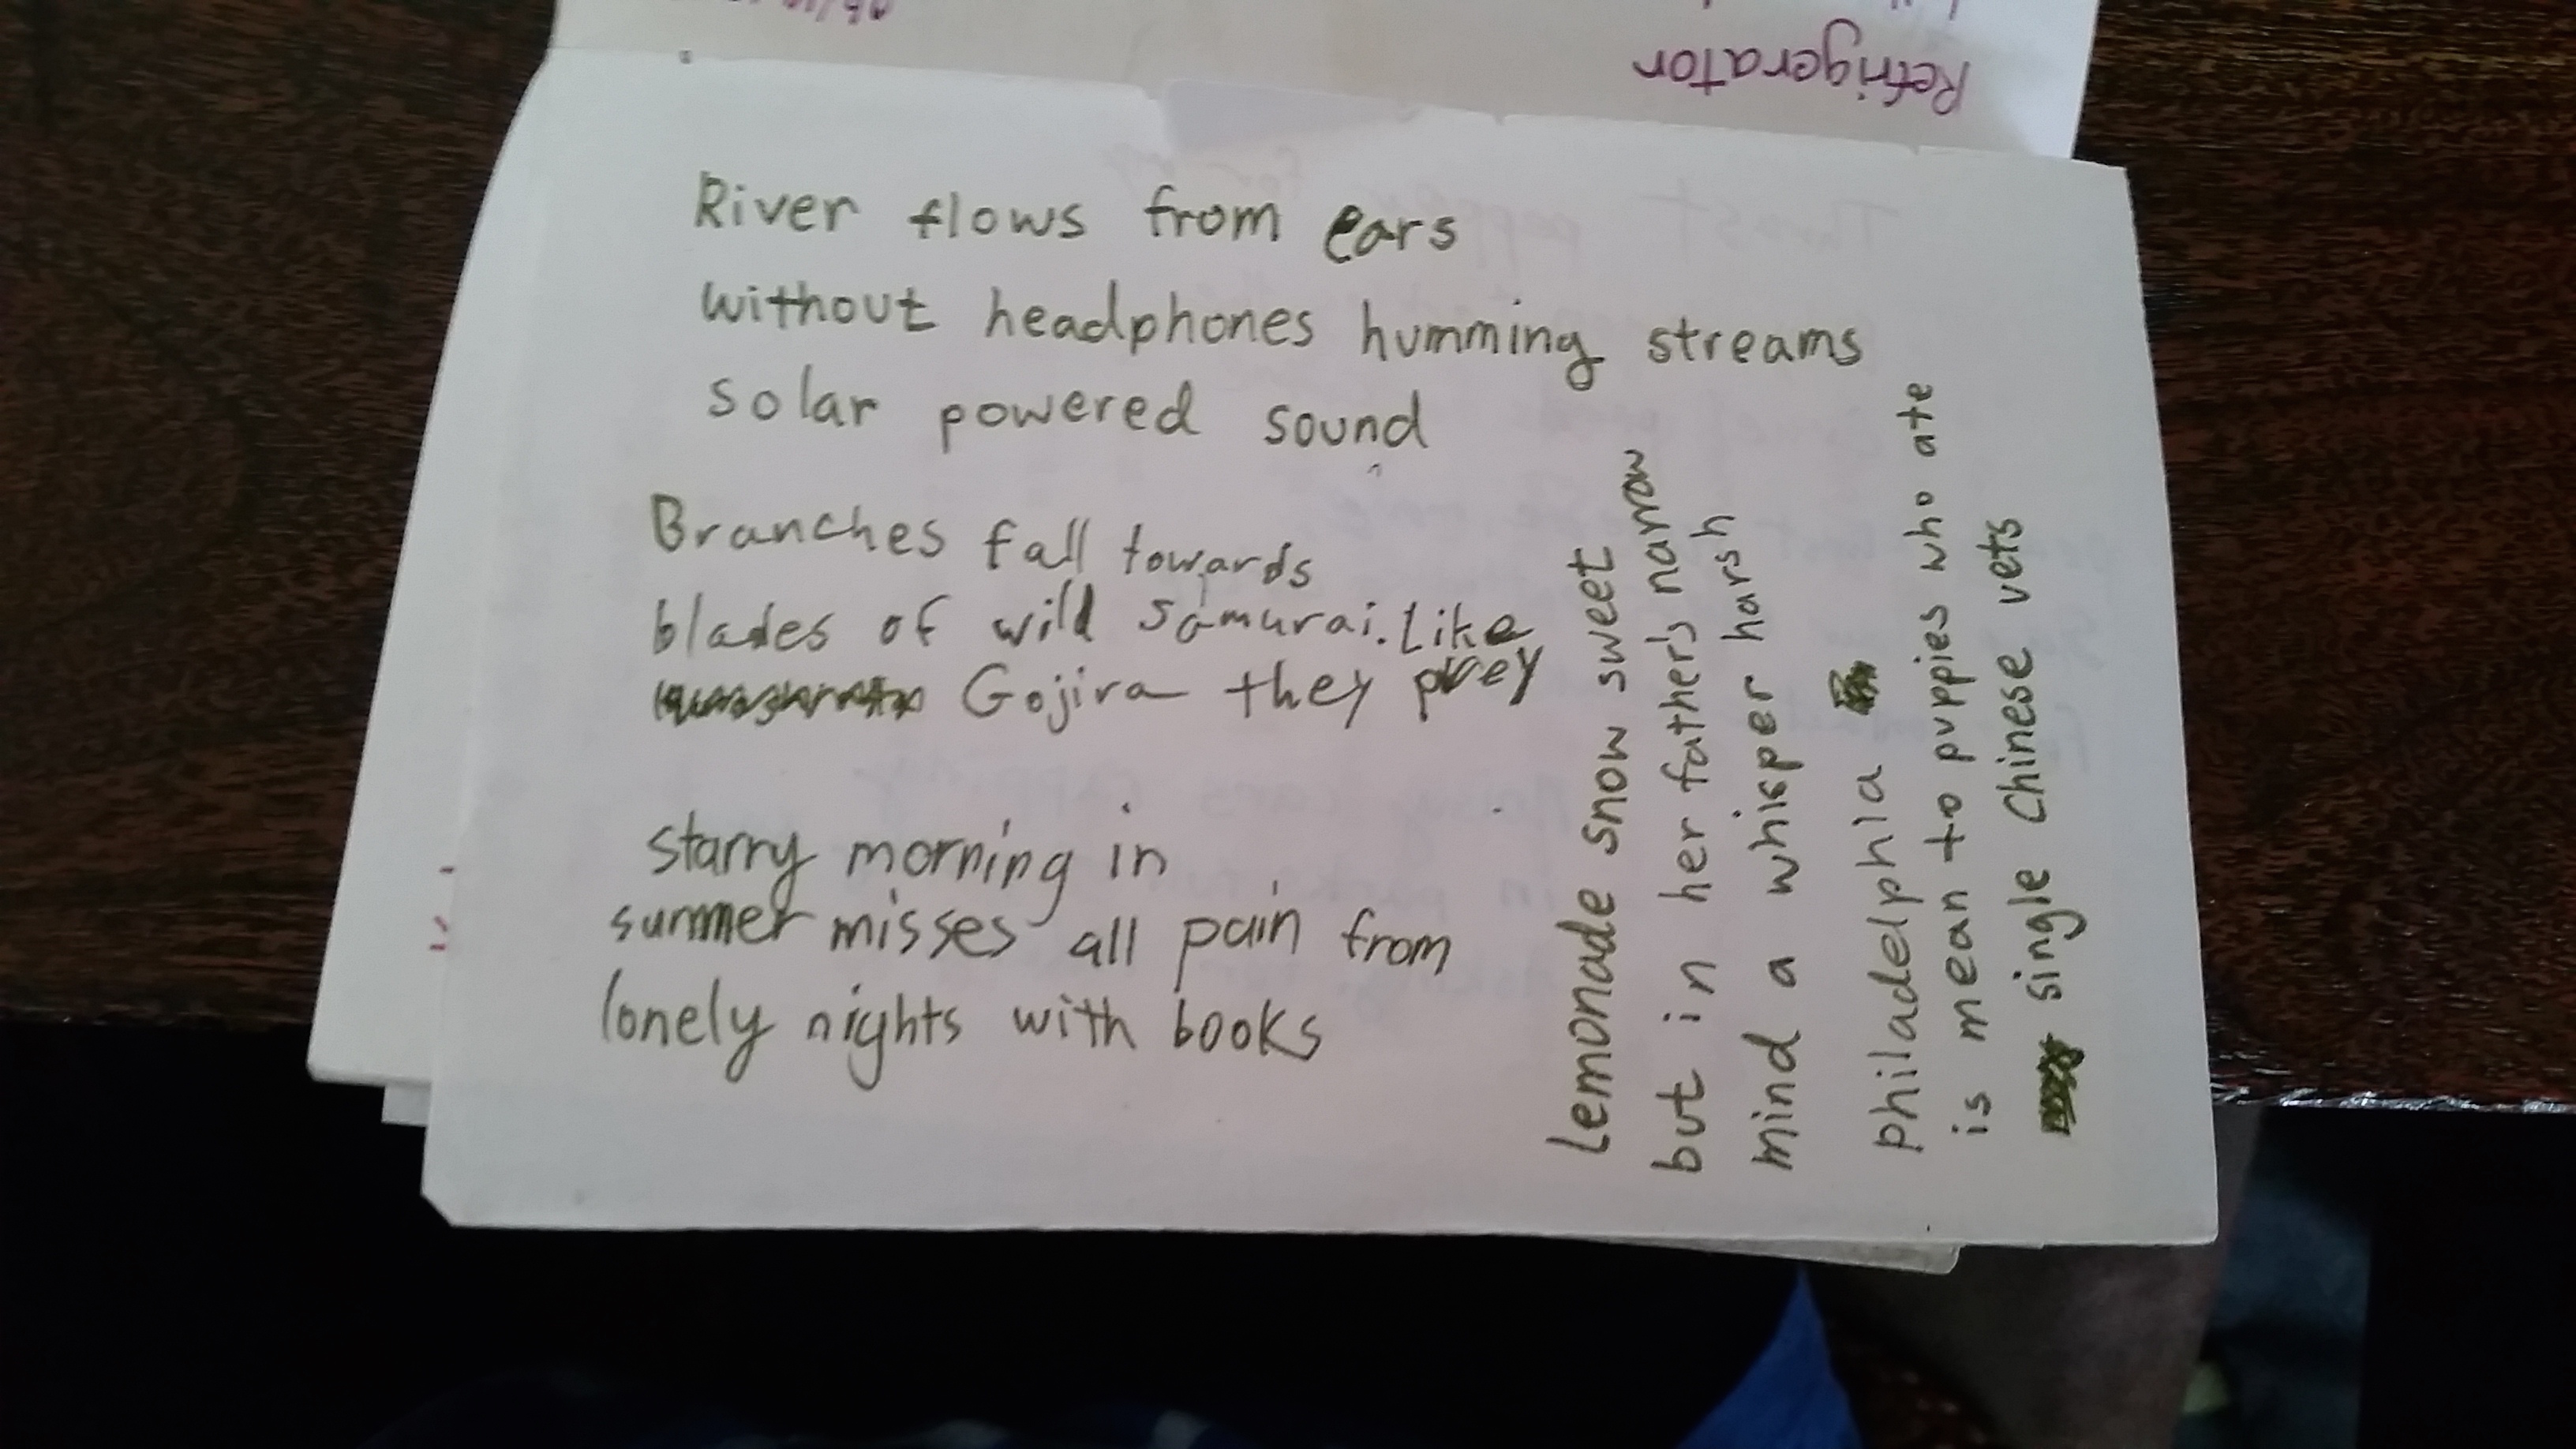 Refrigerator
River flows from ears
without headphones humming streams
solar powered sound
Branches fall towards
blades of wild samurai. Like
Gojira they prey
starry morning in
summer misses all pain from
lonely nights with books
Lemonade snow sweet
but in her father's narrow
mind a whisper harsh
philadelphia
is mean to puppies who ate
single Chinese vets